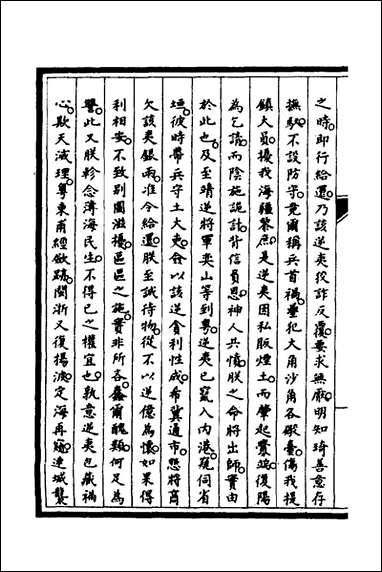 之時即行給還乃該逆夷狡詐反覆要求無厭明知琦善意存
撫馭不設防守竟爾稱兵首禍疊犯大角沙角各礮臺傷我提
鎮大員擾我海疆黎庶是逆夷因私販煙土而肇起釁端復陽
為乞請而陰施詭計背信負恩神人共憤朕之命將出師實由
於此也及至靖逆將軍奕山等到粵逆夷已竄入內港窺伺省
垣彼時帶兵守土大吏僉以該逆貪利性成希冀通市懇將商
欠該夷銀兩准令給還朕至誠待物從不以逆億為懷如果得
利相安不致別圖滋擾區區之施實非所吝蠢爾醜類何足為
讐此又朕軫念薄海民生不得已之權宜也孰意逆夷包藏禍
心欺天滅理粵東甫經斂跡閩浙又復揚波定海再竄連城襲